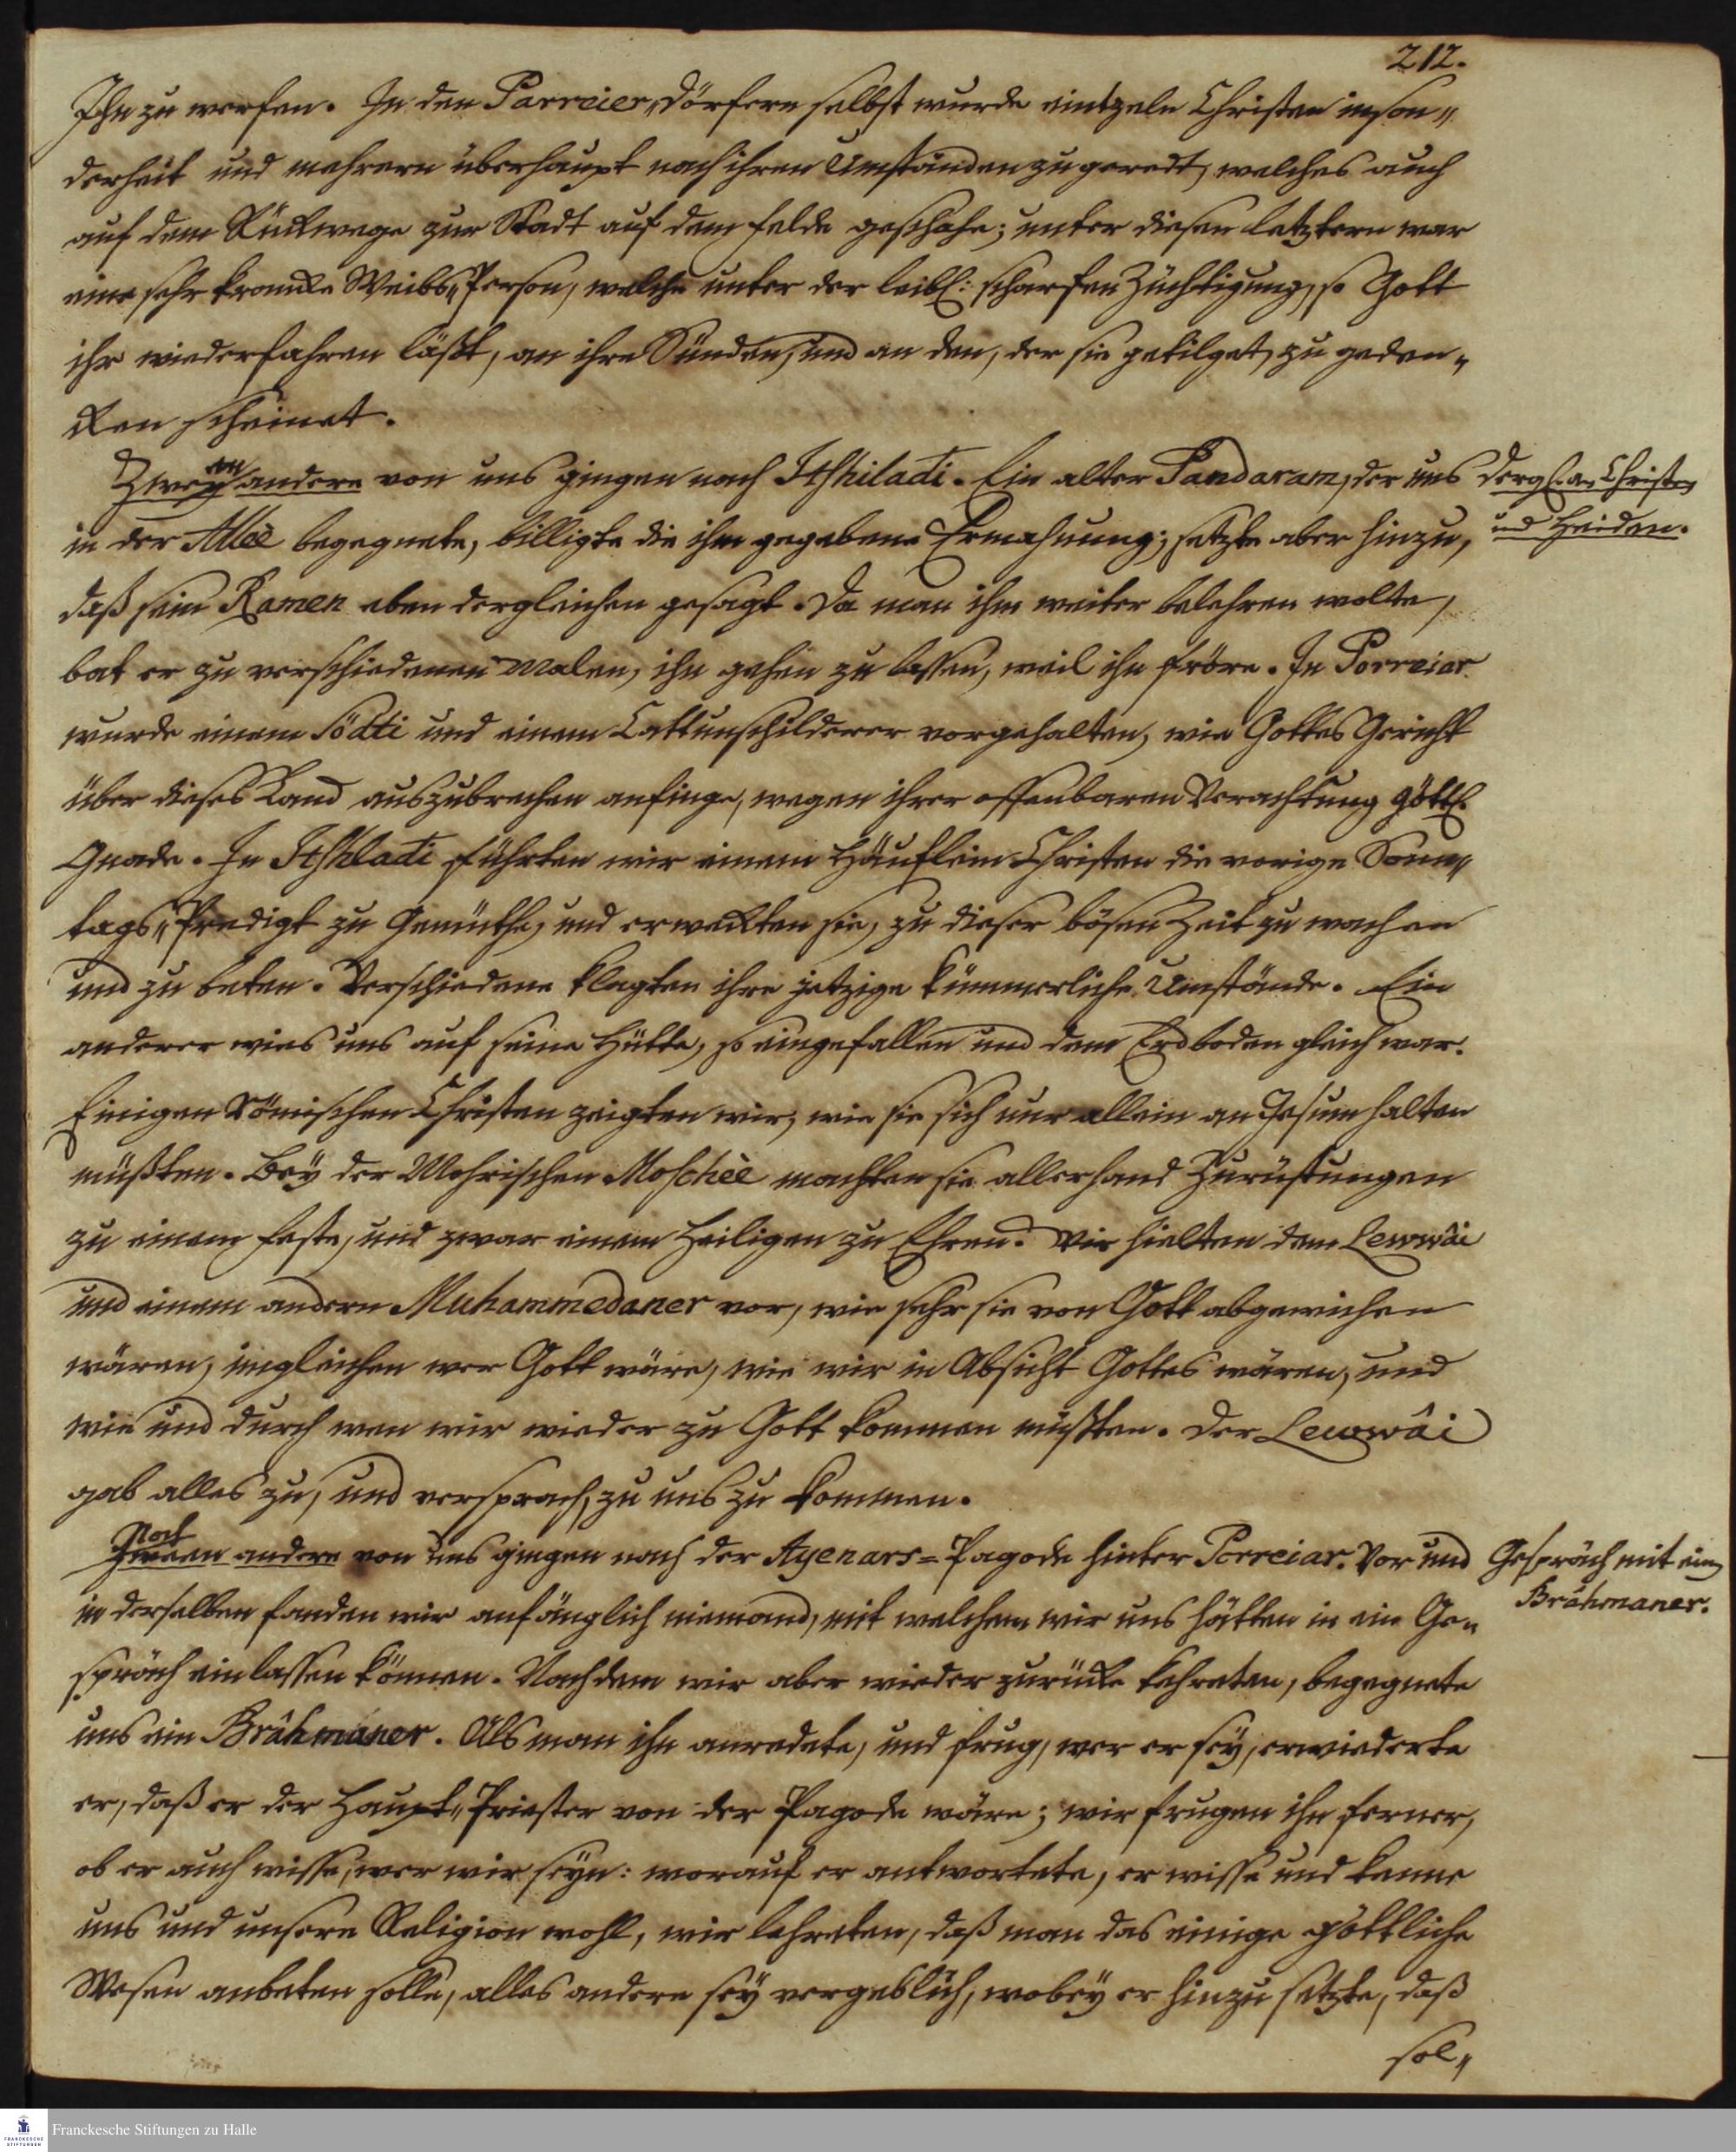 212.
Ihn zu werfen. In den Parreier„Dörfern selbst wurde eintzeln Christen inson„
derheit und mehrern überhaupt nach ihren Umständen zugeredt, welches auch
auf dem Rückwege zur Stadt auf dem felde geschahe; unter diesen letztern war
eine sehr krancke Weibs„Person, welche unter der leibl: scharfen Züchtigung, so Gott
ihr wiederfahren läßt, an ihre Sünden, und an den, der sie getilget, zu geden„
cken scheinet.
Zween andere von uns gingen nach Itshiladi. Ein alter Pandaram, der uns
dergl. an Christen
in der Alleè begegnete, billigte die ihm gegebene Ermahnung; setzte aber hinzu,
und Heiden.
daß sein Ramen eben dergleichen gesagt. Da man ihm weiter belehren wolte,
bat er zu verschiedenen Malen, ihn gehen zu lassen, weil ihn fröre. In Porreiar
wurde einem Södti und einem Cattunschilderer vorgehalten, wie Gottes Gericht
über dieses Land auszubrechen anfinge, wegen ihrer offenbaren Verachtung göttl.
Gnade. In Itshladi führten wir einem Häuflein Christen die vorige Sonn„
tags„Predigt zu Gemüthe, und erweckten sie, zu dieser bösen Zeit zu wachen
und zu beten. Verschiedene klagten ihre jetzige kümmerliche Umstände. Ein
anderer wies uns auf seine Hütte, so eingefallen und dem Erdboden gleich war.
Einigen Römischen Christen zeigten wir, wie sie sich nur allein an Jesum halten
müßten. Bey der Mohrischen Moscheè machten sie allerhand Zurüstungen
zu einem feste, und zwar einem Heiligen zu Ehren. Wir hielten dem Lewwâi
und einem andern Muhammedaner vor, wie sehr sie von Gott abgewichen
wären, ingleichen wer Gott wäre, wie wir in Absicht Gottes wären, und
wie und durch wen wir wieder zu Gott kommen müßten. Der Lewwâi
gab alles zu, und versprach, zu uns zu kommen.
Noch
Zween andere von uns gingen nach der Ayenars=Pagode hinter Porreiar. Vor und
Gespräch mit ein
in derselben fanden wir anfänglich niemand, mit welchem wir uns hätten in ein Ge„
Brâhmaner.
spräch einlassen können. Nachdem wir aber wieder zurücke kehreten, begegnete
uns ein Brâhmaner. Als man ihn anredete, und frug, wer er sey, erwiederte
er, daß er der Haupt„Priester von der Pagode wäre; wir frugen ihn ferner,
ob er auch wisse, wer wir seyn: worauf er antwortete, er wisse und kenne
uns und unsere Religion wohl, wir lehreten, daß man das einige göttliche
Wesen anbeten solle, alles andere sey vergeblich, wobey er hinzu setzte, daß
sol„
FRANCKESCHE
STIFTUNGEN
Franckesche Stiftungen zu Halle